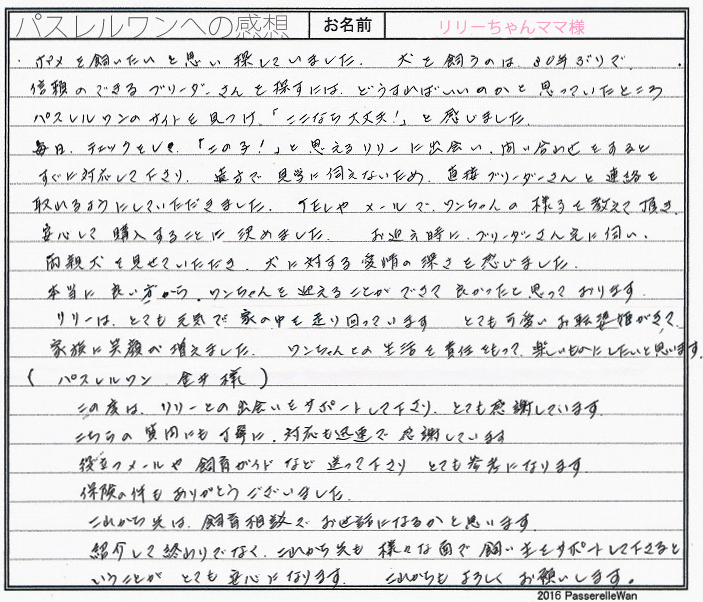 パスレルワンへの感想 お名前 リリーちゃんママ様
・ポメを飼いたいと思い探していました。 犬を飼うのは、30年ぶりで、
信頼のできるブリーダーさんを探すには、どうすればいいのかと思っていたところ
パスレルワンのサイトを見つけ、「ここなら大丈夫!」と感じました。
毎日、チェックをして、「この子!」と思えるリリーに出会い、問い合わせをすると
すぐに対応して下さり、遠方で見学に伺えないため、直接ブリーダーさんと連絡を
取れるようにしていただきました。 TELやメールで、ワンちゃんの様子を教えて頂き、
安心して購入することに決めました。 お迎え時に、ブリーダーさん宅に伺い、
両親犬を見せていただき、犬に対する愛情の深さを感じました。
本当に良い方から、ワンちゃんを迎えることができて良かったと思っております。
リリーは、とても元気で家の中を走り回っています とても可愛いお転婆姫がきて、
家族に笑顔が増えました。 ワンちゃんとの生活を責任をもって、楽しいものにしたいと思います。
( パスレルワン 金井様 )
この度は、リリーとの出会いをサポートして下さり、とても感謝しています。
こちらの質問にも丁寧に、対応も迅速で感謝しています
役立つメールや飼育ガイドなど送って下さり とても参考になります。
保険の件もありがとうございました。
これから先は、飼育相談でお世話になるかと思います。
紹介して終わりでなく、これから先も様々な面で飼い主をサポートして下さると
いうことが とても安心になります。 これからもよろしくお願いします。
2016 PasserelleWan